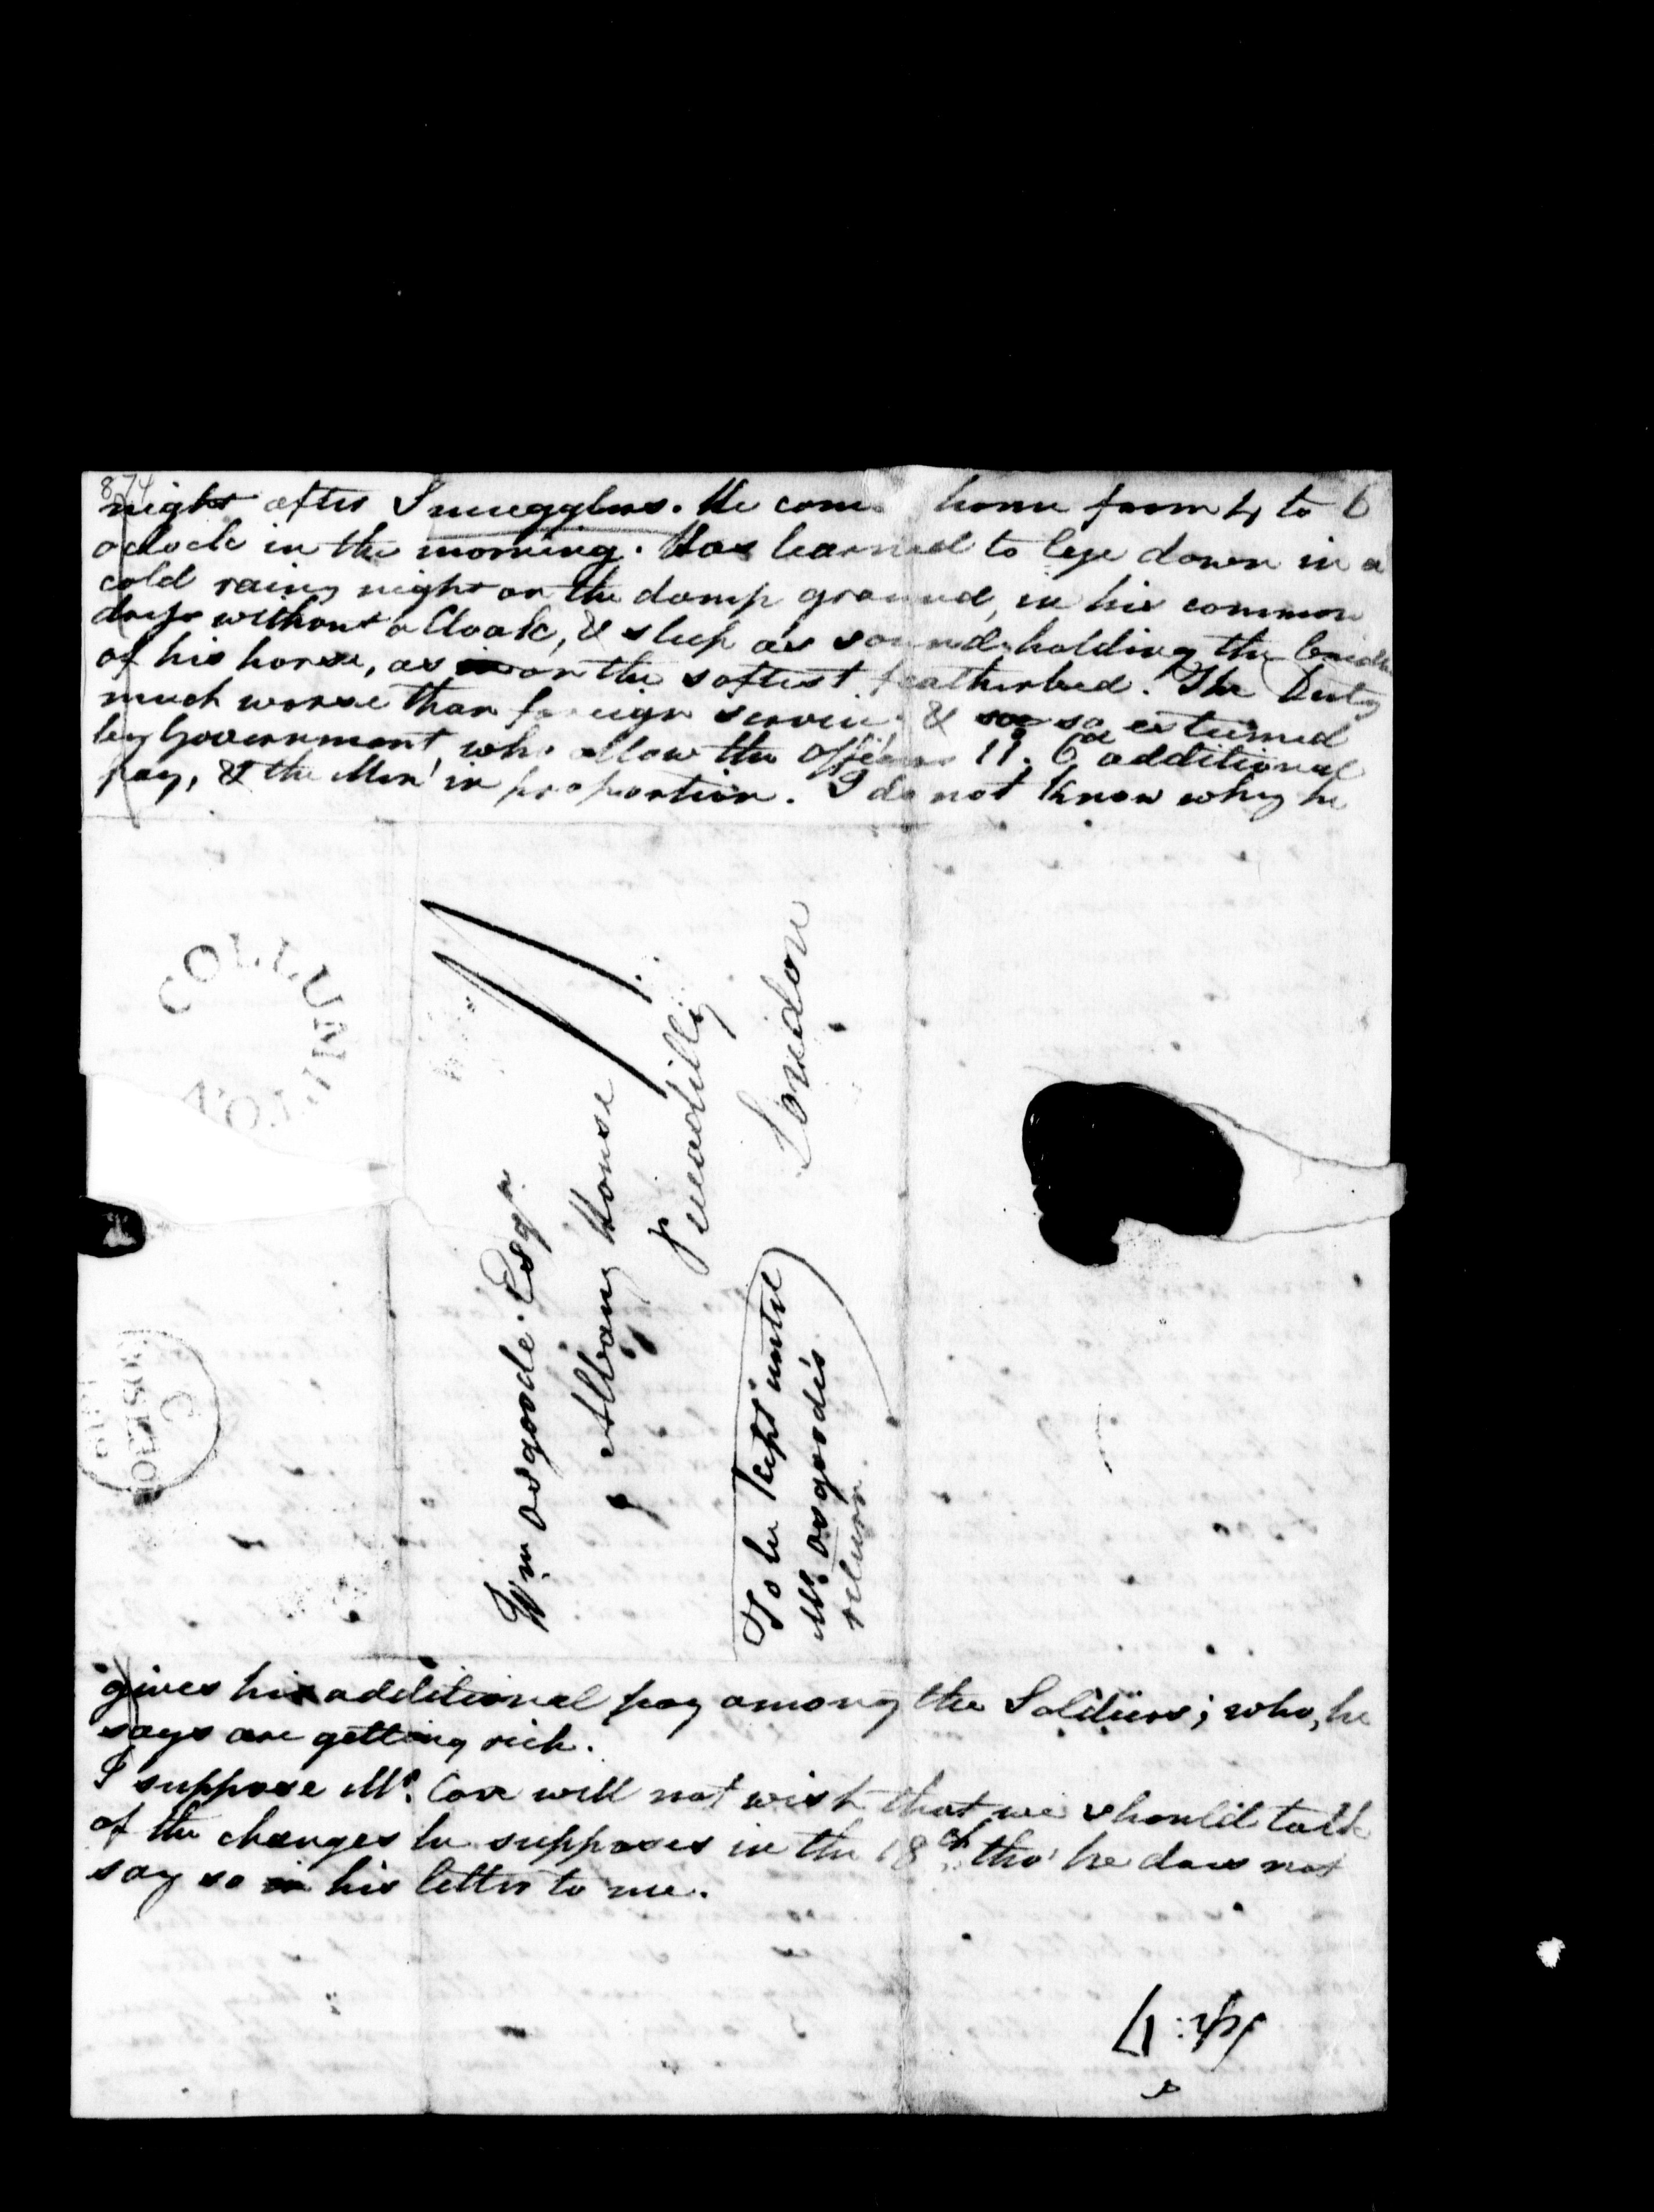 874
night after Smugglers. He comes home from 4 to 6
oclock in the morning. Has learned to lye down in a
cold rainy night on the damp ground, in his common
days without a Cloak, & sleep as sound, holding the bridle
of his horse, as on the softest featherbed. The Duty
much worse than foreign service & so esteemed
by Government who allow the officers 11s. 6d additional
pay, & the Men in proportion. I do not know why he
COLLUMPTON
Wm Osgoode Esqr
Albany House
Piccadilly
London
To be kept until
Mr. Osgoode's
return
gives his additional pay among the Soldiers; who, he
says are getting rich.
I suppose Mr. Cox will not wish that we should talk
of the changes he supposes in the 18th, tho' he does not
say so in his letter to me.